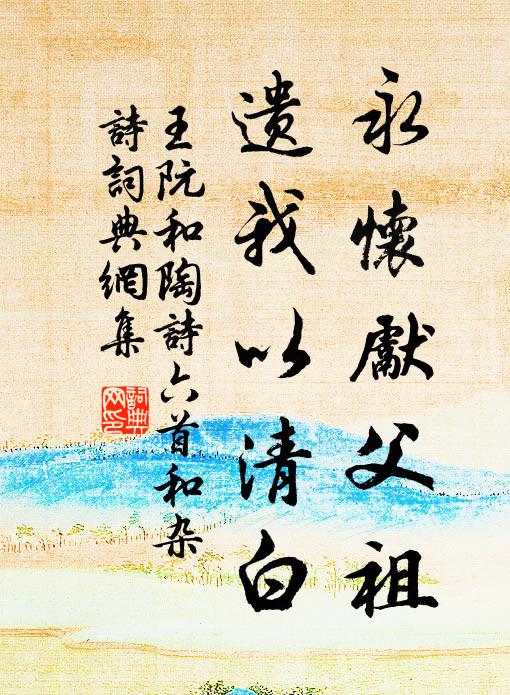 永懷獻父祖
遗我以清白
王阮和陶詩六首和杂
詩詞典網集
詞典
网印